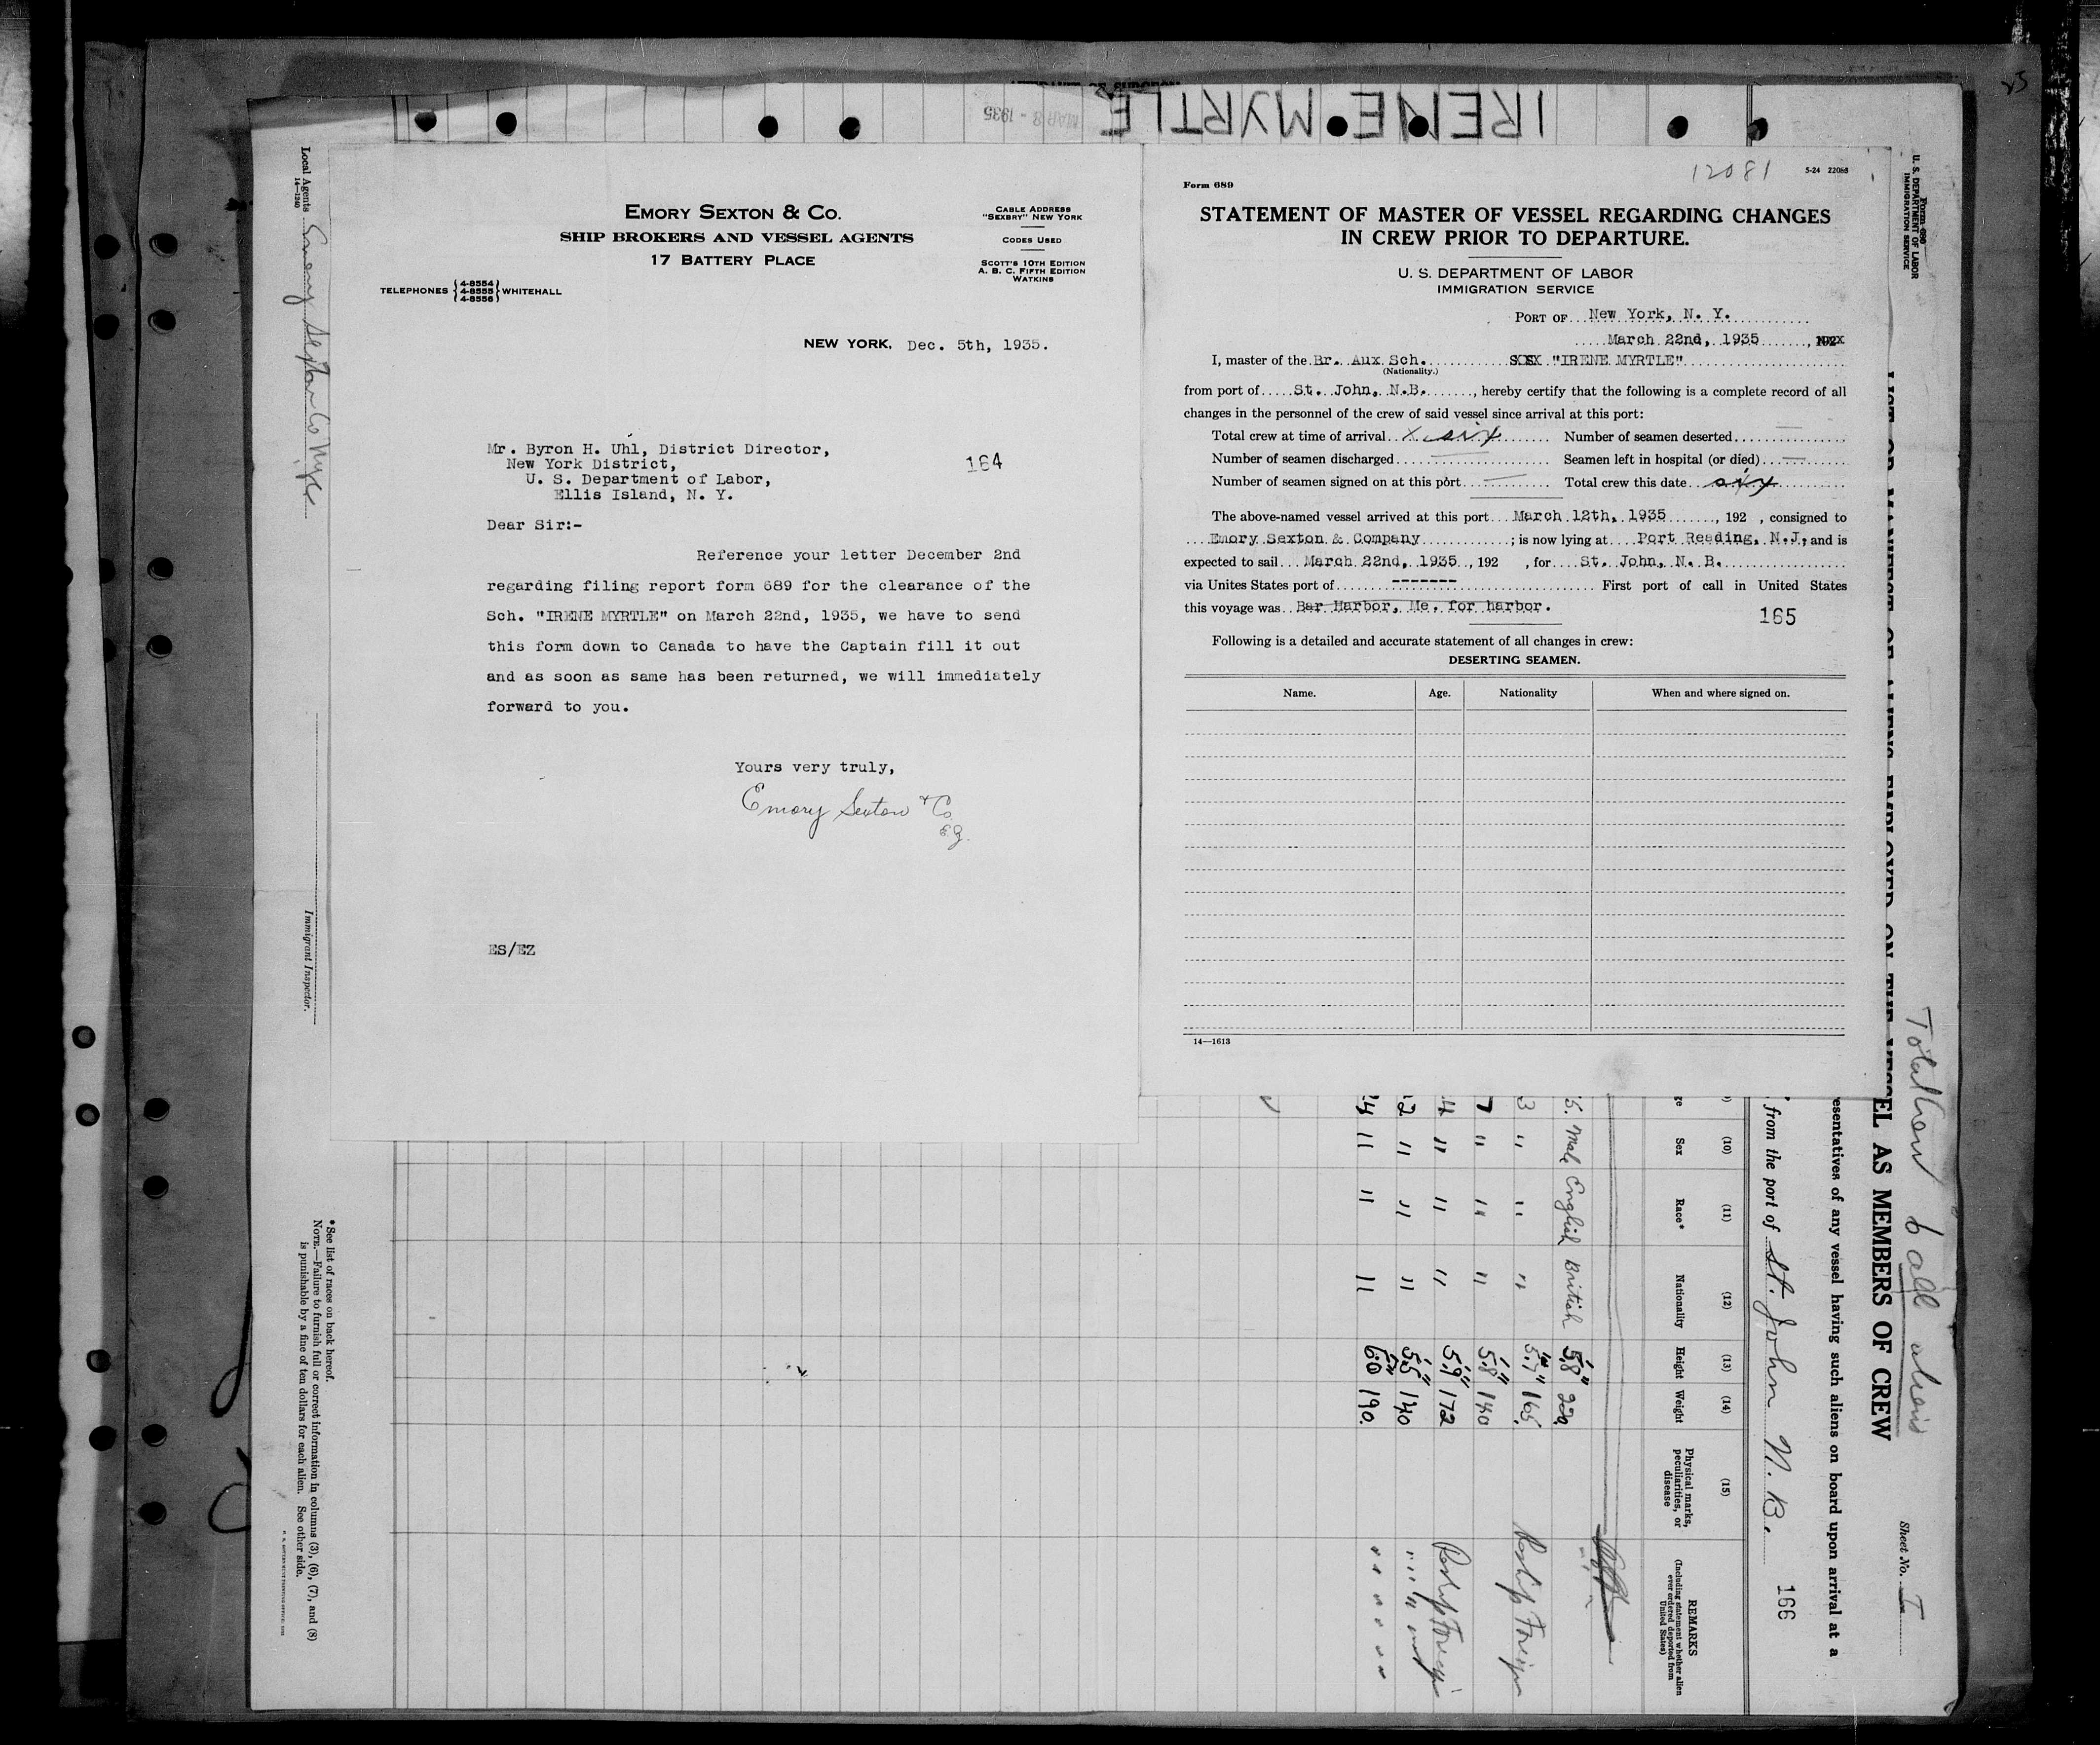 IRENE MYRTLE
MAR 8 - 1935
EMORY SEXTON & CO.
SHIP BROKERS AND VESSEL AGENTS
17 BATTERY PLACE
CABLE ADDRESS
"SEXBRY" NEW YORK
CODES USED
SCOTT'S 10TH EDITION
A. B. C. FIFTH EDITION
WATKINS
TELEPHONES { 4-8554 4-8555 4-8556 } WHITEHALL
NEW YORK, Dec. 5th, 1935.
Mr. Byron H. Uhl, District Director,
New York District,
U. S. Department of Labor,
Ellis Island, N. Y.
164
Dear Sir:-
Reference your letter December 2nd
regarding filing report form 689 for the clearance of the
Sch. "IRENE MYRTLE" on March 22nd, 1935, we have to send
this form down to Canada to have the Captain fill it out
and as soon as same has been returned, we will immediately
forward to you.
Yours very truly,
Emory Sexton & Co
ES/EZ
12081
5-24 22088
Form 689
STATEMENT OF MASTER OF VESSEL REGARDING CHANGES
IN CREW PRIOR TO DEPARTURE.
U. S. DEPARTMENT OF LABOR
IMMIGRATION SERVICE
PORT OF New York, N. Y.
March 22nd, 1935
I, master of the Br. Aux Sch. "IRENE MYRTLE"
(Nationality.)
from port of St. John, N.B., hereby certify that the following is a complete record of all
changes in the personnel of the crew of said vessel since arrival at this port:
Total crew at time of arrival x six Number of seamen deserted —
Number of seamen discharged — Seamen left in hospital (or died) —
Number of seamen signed on at this port — Total crew this date six
The above-named vessel arrived at this port March 12th, 1935, 192 , consigned to
Emory Sexton & Company; is now lying at Port Reading, N.J, and is
expected to sail March 22nd, 1935, 192 , for St. John, N. B.
via Unites States port of ------- First port of call in United States
this voyage was Bar Harbor, Me. for harbor.
165
Following is a detailed and accurate statement of all changes in crew:
DESERTING SEAMEN.
Name. Age. Nationality When and where signed on.
14—1613
Local Agents Emory Sexton Co
14—1240
Immigrant Inspector.
*See list of races on back hereof.
NOTE.—Failure to furnish full or correct information in columns (3), (6), (7), and (8)
is punishable by a fine of ten dollars for each alien. See other side.
U. S. DEPARTMENT OF LABOR
IMMIGRATION SERVICE
Total Crew 6 all aliens
Sheet No. 1
EL AS MEMBERS OF CREW
esentatives of any vessel having such aliens on board upon arrival at a
from the port of St. John N.B.
166
(10) (11) (12) (13) (14) (15)
Sex Race* Nationality Height Weight Physical marks, peculiarities, or disease
REMARKS
(Including statement whether alien
ever ordered deported from
United States)
Male English British 5'8" 220
" " " 5'7" 165
" " " 5'8" 140
" " " 5'9" 172
" " " 5'5" 140
" " " 6'0" 190